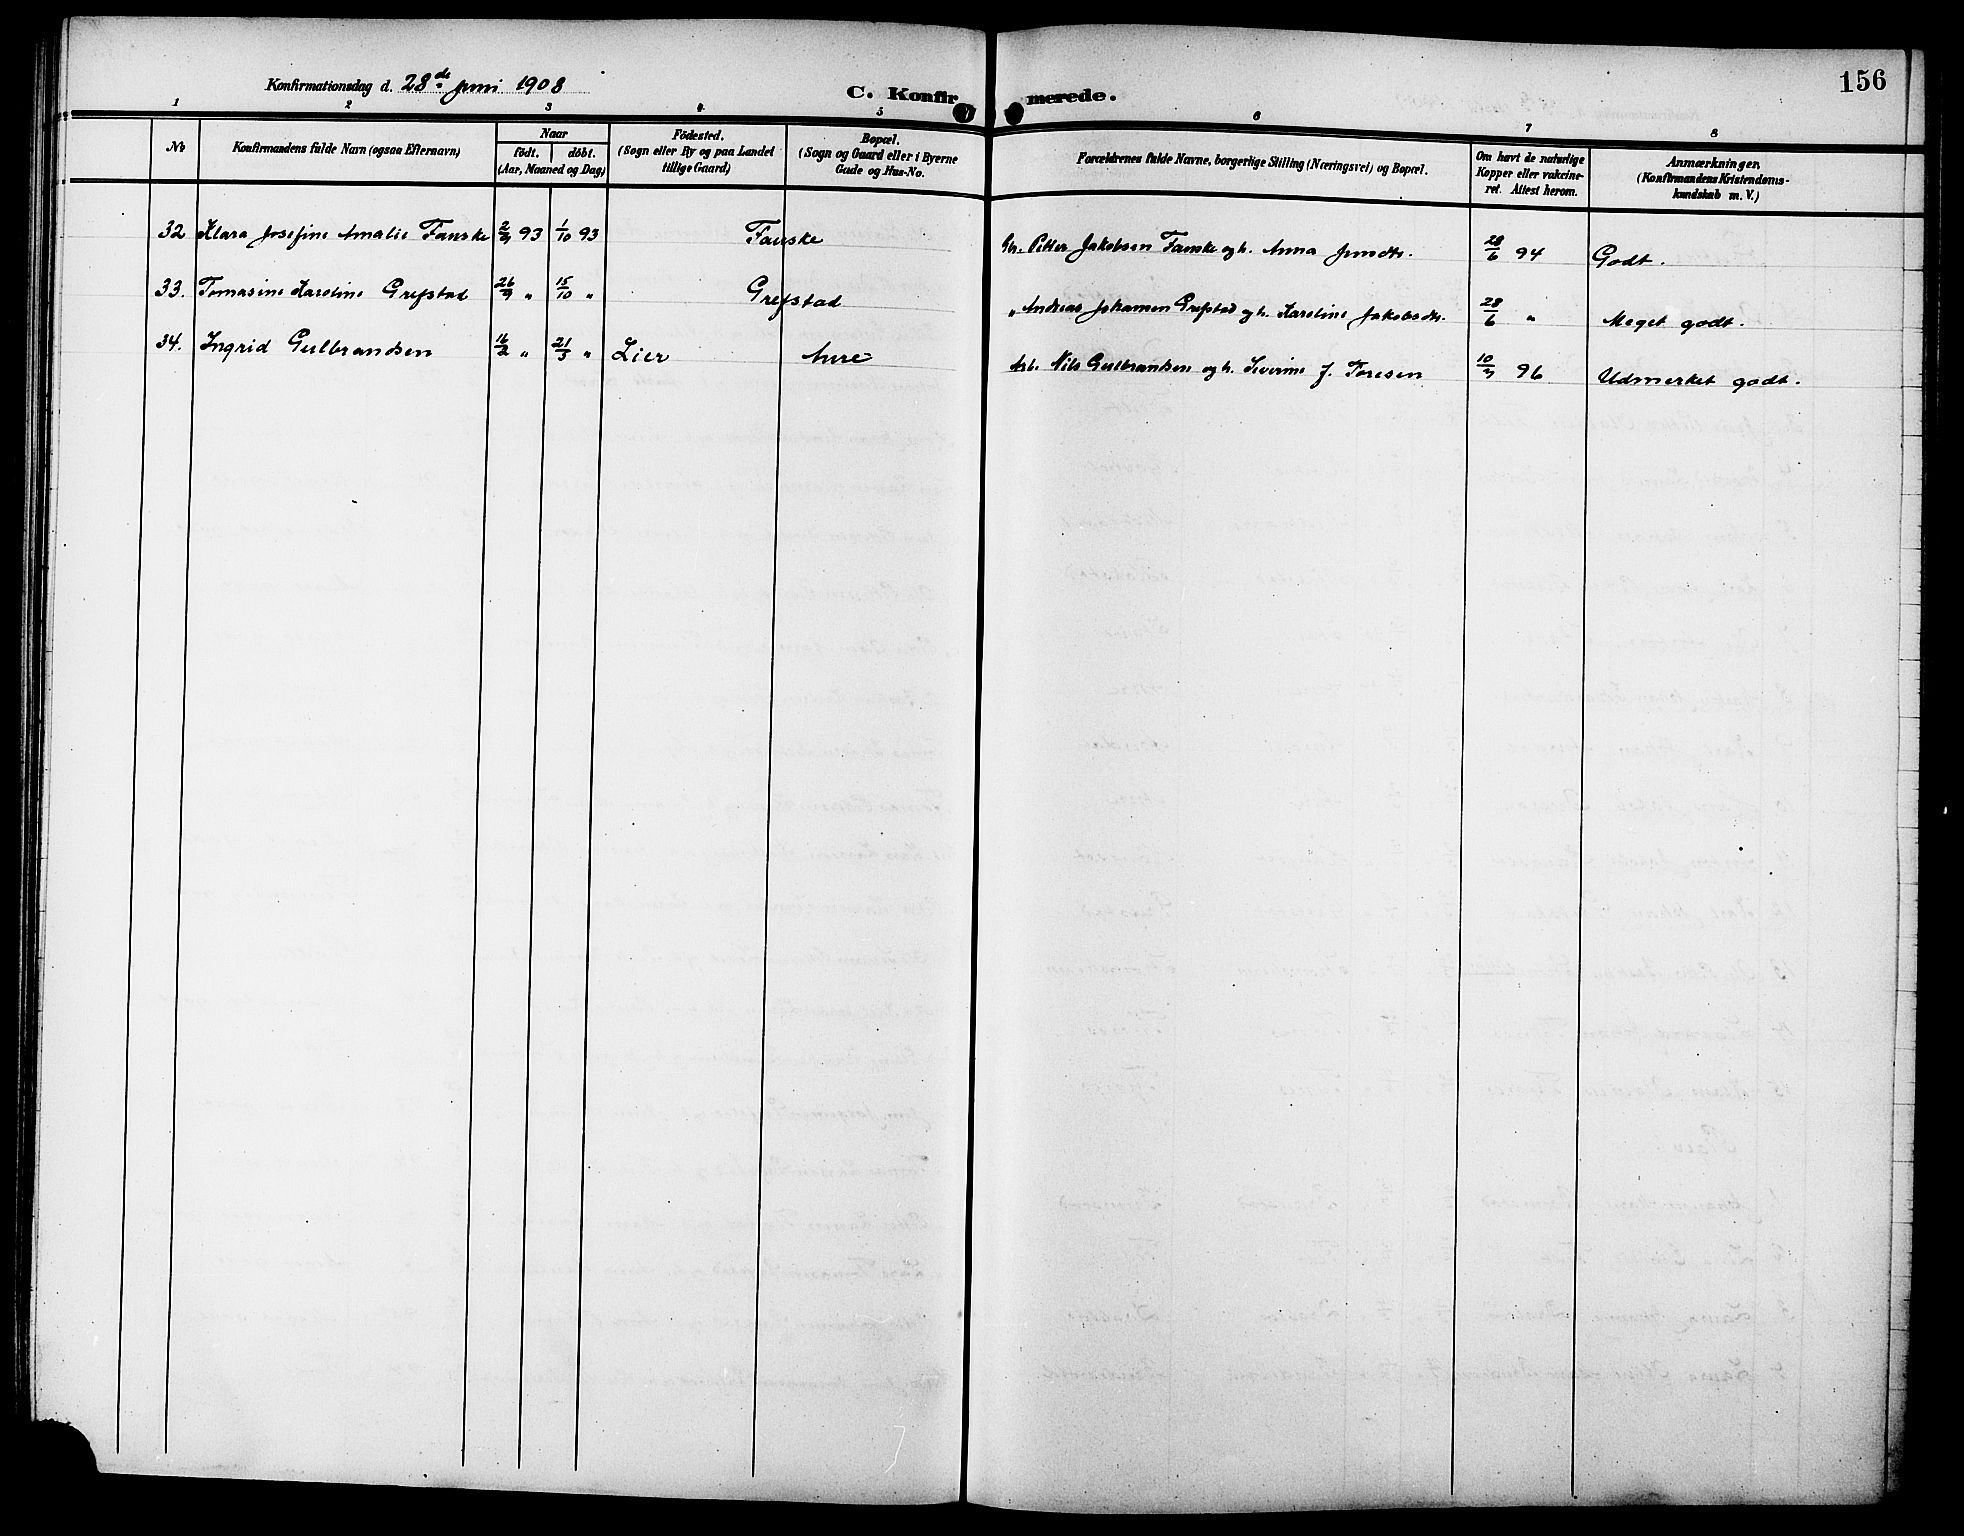 156
Konfirmationsdag d. 28de Juni 1908
C. Konfirmerede.
1 2 3 4 5 6 7 8
No
Konfirmandens fulde Navn (ogsaa Efternavn)
Naar
födt. döbt.
(Aar, Maaned og Dag)
Födested.
(Sogn eller By og paa Landet
tillige Gaard)
Bopæl.
(Sogn og Gaard eller i Byerne
Gade og Hus-No.
Forældrenes fulde Navne, borgerlige Stilling (Næringsvei) og Bopæl.
Om havt de naturlige
Kopper eller vakcine-
ret. Attest herom.
Anmærkninger
(Konfirmandens Kristendoms-
kundskab m. V.)
32 Klara Josefine Amalie Fauske 2/9 93 1/10 93 Fauske Gbr. Petter Jakobsen Fauske og h. Anna Jensdtr. 28/6 94 Godt.
33. Tomasine Karoline Grepstad 26/9 " 15/10 " Grepstad " Andreas Johansen Grepstad og h. Karoline Jakobsdtr. 28/6 " Meget godt.
34. Ingrid Gulbrandsen 16/2 " 21/3 " Lier Aure Arb. Nils Gulbrandsen og h. Severine J. Toresen 10/9 96 Udmerket godt.